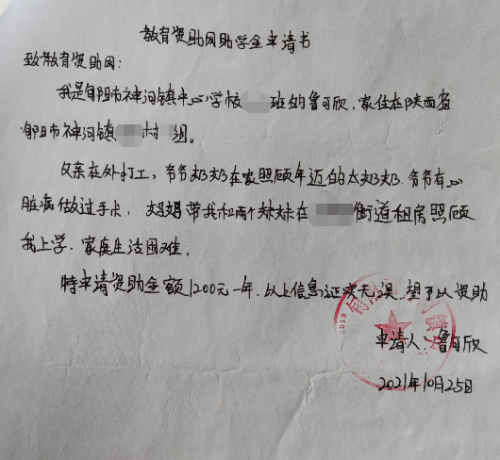 教育资助网助学金申请书
致教育资助网：
我是旬阳市神河镇中心学校班的鲁可欣，家住在陕西省
旬阳市神河镇村组。
父亲在外打工，爷爷奶奶在家照顾年迈的太奶奶.爷爷有心
脏病做过手术，妈妈带我和两个妹妹在街道租房照顾
我上学.家庭生活困难.
特申请资助金额1200元一年.以上信息证实无误.望予以资助
申请人:鲁可欣
2021年10月25日